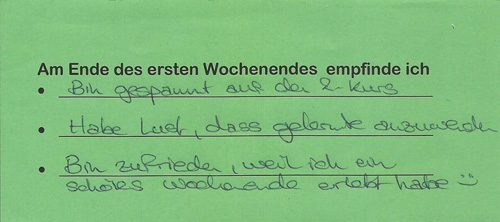 Am Ende des ersten Wochenendes empfinde ich
• Bin gespannt auf den 2. Kurs
• Habe Lust, dass gelernte anzuwenden
• Bin zufrieden, weil ich ein
schönes Wochenende erlebt habe :)